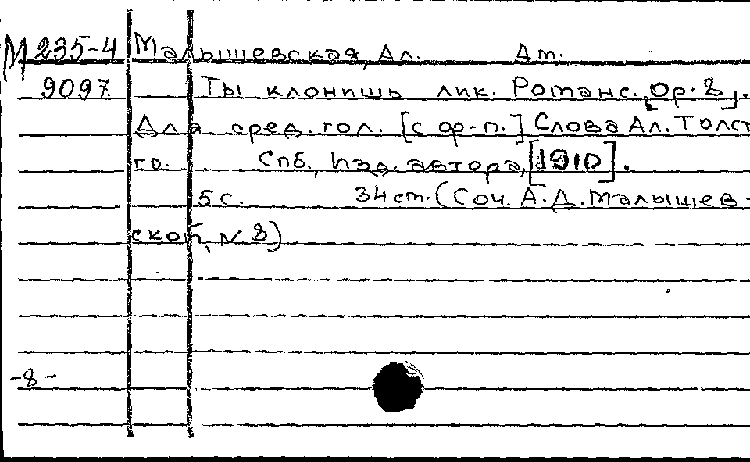 М 235-4 Малышевская, Ал. Дм.
9097 Ты клонишь лик. Романс. [Ор. 8].
Для сред. гол. [с ф-п.] Слова Ал. Толст
го. Спб., Изд. автора, [1910].
5 с. 34 ст. (Соч. А. Д. Малышев-
ской, № 8)
-8-